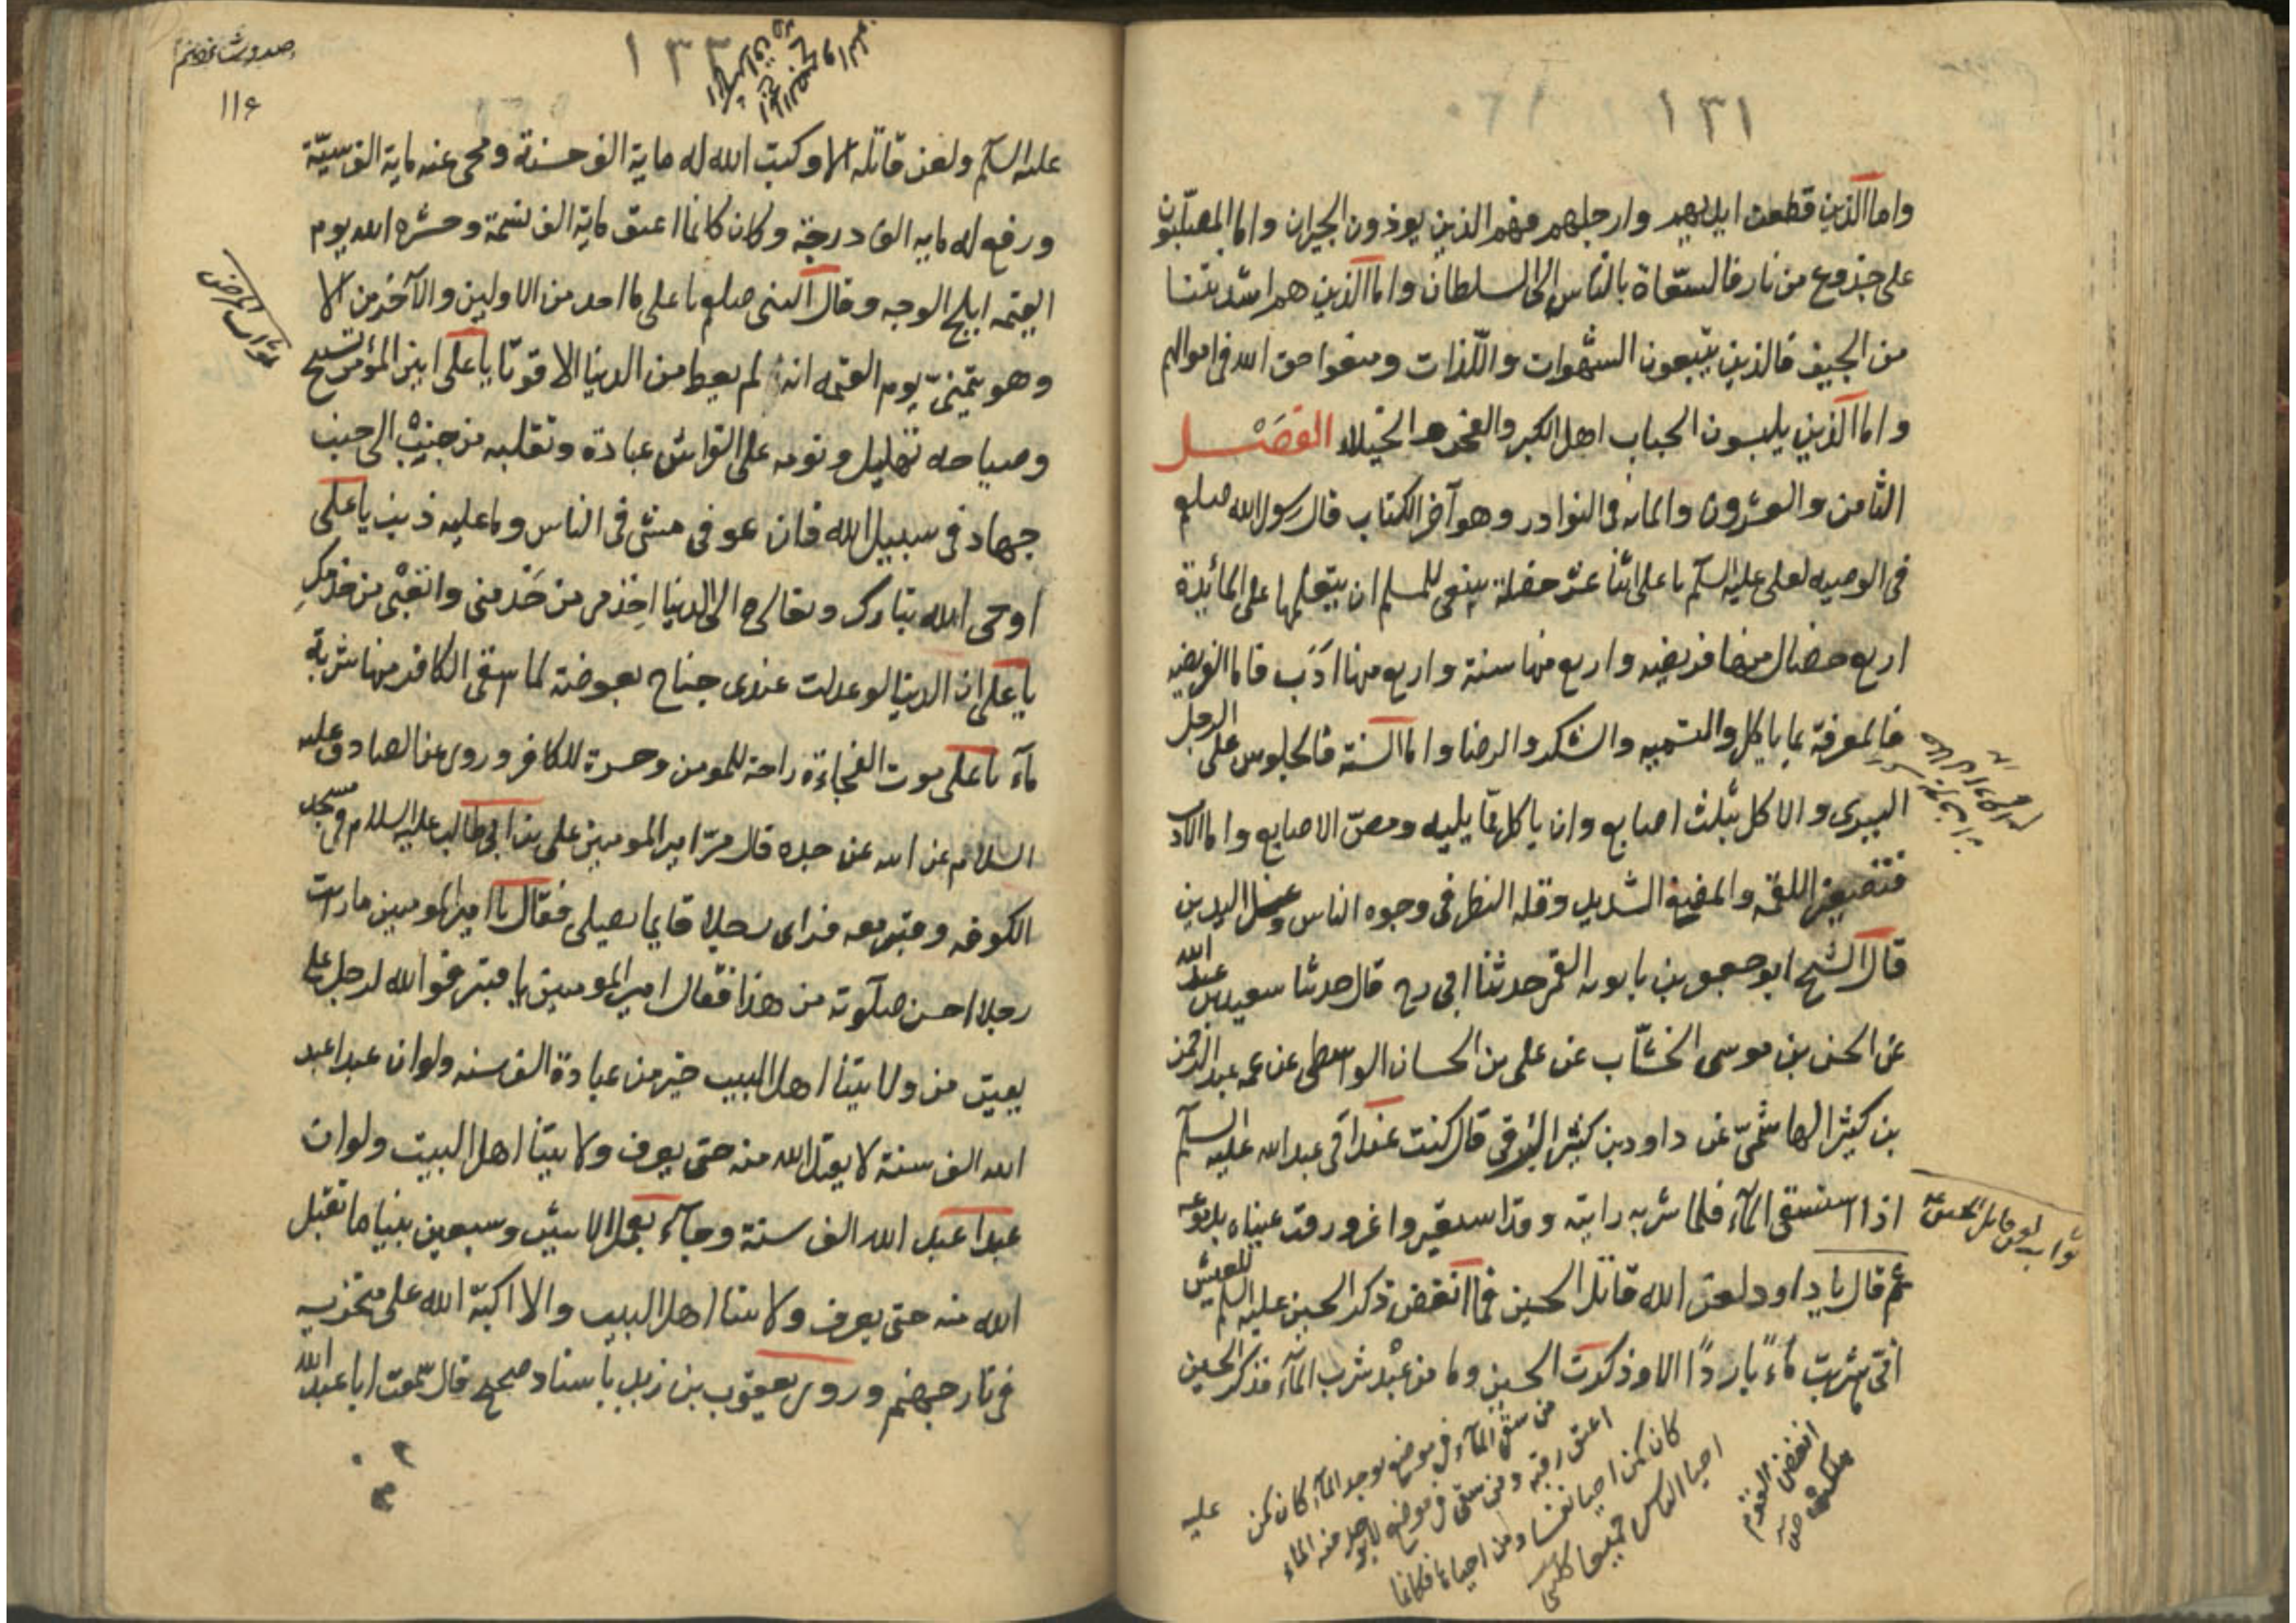 ١٣١
واما الذين قطعت ايديهم وارجلهم فهم الذين يوذون الجيران واما المصلّبون
على جذوع من نار فالسعّاة بالناس الى السلطان واما الذين هم اشد نتنا
من الجيف فالذين يتبعون الشهوات واللّذات ومنعوا حق الله فى اموالهم
واما الذين يلبسون الجباب اهل الكبر والفخر والخيلاء الفصل
الثامن والعشرون والمائه فى النوادر وهو آخر الكتاب قال رسول الله صلعم
فى الوصيه لعلى عليه السلم يا على اثنا عشر خصلة ينبغى للمسلم ان يتعلمها على المائدة
اربع خصال منها فريضه واربع منها سنة واربع منها ادَب فاما الفريضه
فالمعرفة بما ياكل والتسميه والشكر والرضا واما السنة فالجلوس على الرجل
اليسرى والاكل بثلث اصابع وان ياكل مّما يليه ومصّ الاصابع واما الادب
فتصغير اللقمه والمضغ الشديد وقله النظر فى وجوه الناس وغسل اليدين
قال الشيخ ابو جعفر بن بابويه القمى حدثنا ابى رح قال حدثنا سعيد بن عبد الله
عن الحسن بن موسى الخشّاب عن على بن الحسان الواسطى عن عمه عبد الرحمن
بن كثير الهاشمىّ عن داود بن كثير الرقى قال كنت عند ابى عبد الله عليه السلم
اذا استسقى المآء فلما شربه رايته وقد استعبر واغرورقت عيناه بدموعه
ثم قال يا داود لعن الله قاتل الحسين فما انغض ذكر الحسين عليه السلم للعيش
انى ما شربت مآءً باردًا الا وذكرت الحسين وما من عبْد شرب المآء فذكر الحسين
ثواب لعن قاتل الحسين
من سقى المآء فى موضع يوجد المآء كان كمن
اعتق رقبه ومن سقى فى موضع لا يوجد فيه الماء
كان كمن احيا نفسا ومن احياها فكانما
احيا الناس جميعا
عليه
١٣٢
١١۶
عليه السلم ولعن قاتله الا وكتب الله له ماية الف حسنة ومحى عنه ماية الف سيّئة
ورفع له مايه الف درجة وكان كانما اعتق ماية الف نسمة وحشره الله يوم
القيمه ابلج الوجه وقال النبى صلعم يا على ما احد من الاولين والآخرين الا
وهو يتمنىّ يوم القيمه انه لم يعط من الدنيا الا قوتا يا على انين المؤمن تسبيح
وصياحه تهليل ونومه على الفراش عبادة وتقلبه من جنب الى جنب
جهاد فى سبيل الله فان عوفى مشى فى الناس وما عليه ذنب يا على
اوحى الله تبارك وتعالى الى الدنيا اخذمى من خَدمنى واتعبى من خدمكِ
يا على ان الدنيا لو عدلت عندى جناح بعوضة لما سقى الكافر منها شربة
مآء يا على موت الفجاءة راحة للمومن وحسرة للكافر وروى عن الصادق عليه
السلام عن ابيه عن جده قال مرّ امير المومنين على بن ابى طالب عليه السلام فى مسجد
الكوفه وقنبر معه فراى رجلا قايما يصلى فقال يا امير المومنين ما رايت
رجلا احسن صلوته من هذا فقال امير المومنين يا قنبر فوالله لرجل على
يقين من ولايتنا اهل البيت خير من عبادة الف سنه ولو ان عبدا عبد
الله الف سنة لا يقبل الله منه حتى يعرف ولايتنا اهل البيت ولو ان
عبدا عبد الله الف سنة وجآء بعمل الاثنين وسبعين نبيا ما تقبل
الله منه حتى يعرف ولايتنا اهل البيت والا اكبّه الله على منخريه
فى نار جهنم وروى يعقوب بن زيد باسناد صحيح قال سمعت ابا عبد الله
ثواب المرض